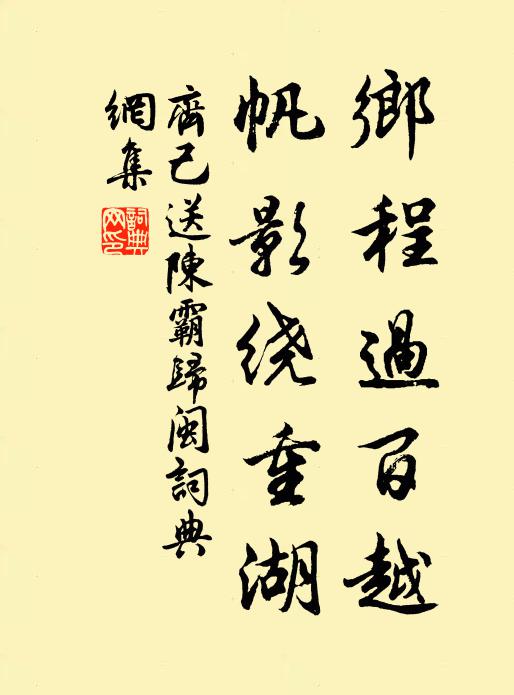 鄉程過百越
帆影绕重湖
齊己送陳霸歸閩詞典
網集
詞典網印